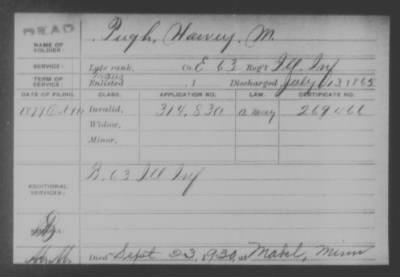 DEAD
NAME OF SOLDIER: Pugh, Harvey, M.
SERVICE: Late rank, Co. E. 63 Reg't Ill Inf
TERM OF SERVICE: Enlisted , 1 Discharged July 13 1865
DATE OF FILING. CLASS. APPLICATION NO. LAW. CERTIFICATE NO.
1879 Oct Invalid, 314,830 269466
Widow,
Minor,
ADDITIONAL SERVICES: B. 63 Ill Inf
Died Sept 23, 1930, at Mabel, Minn